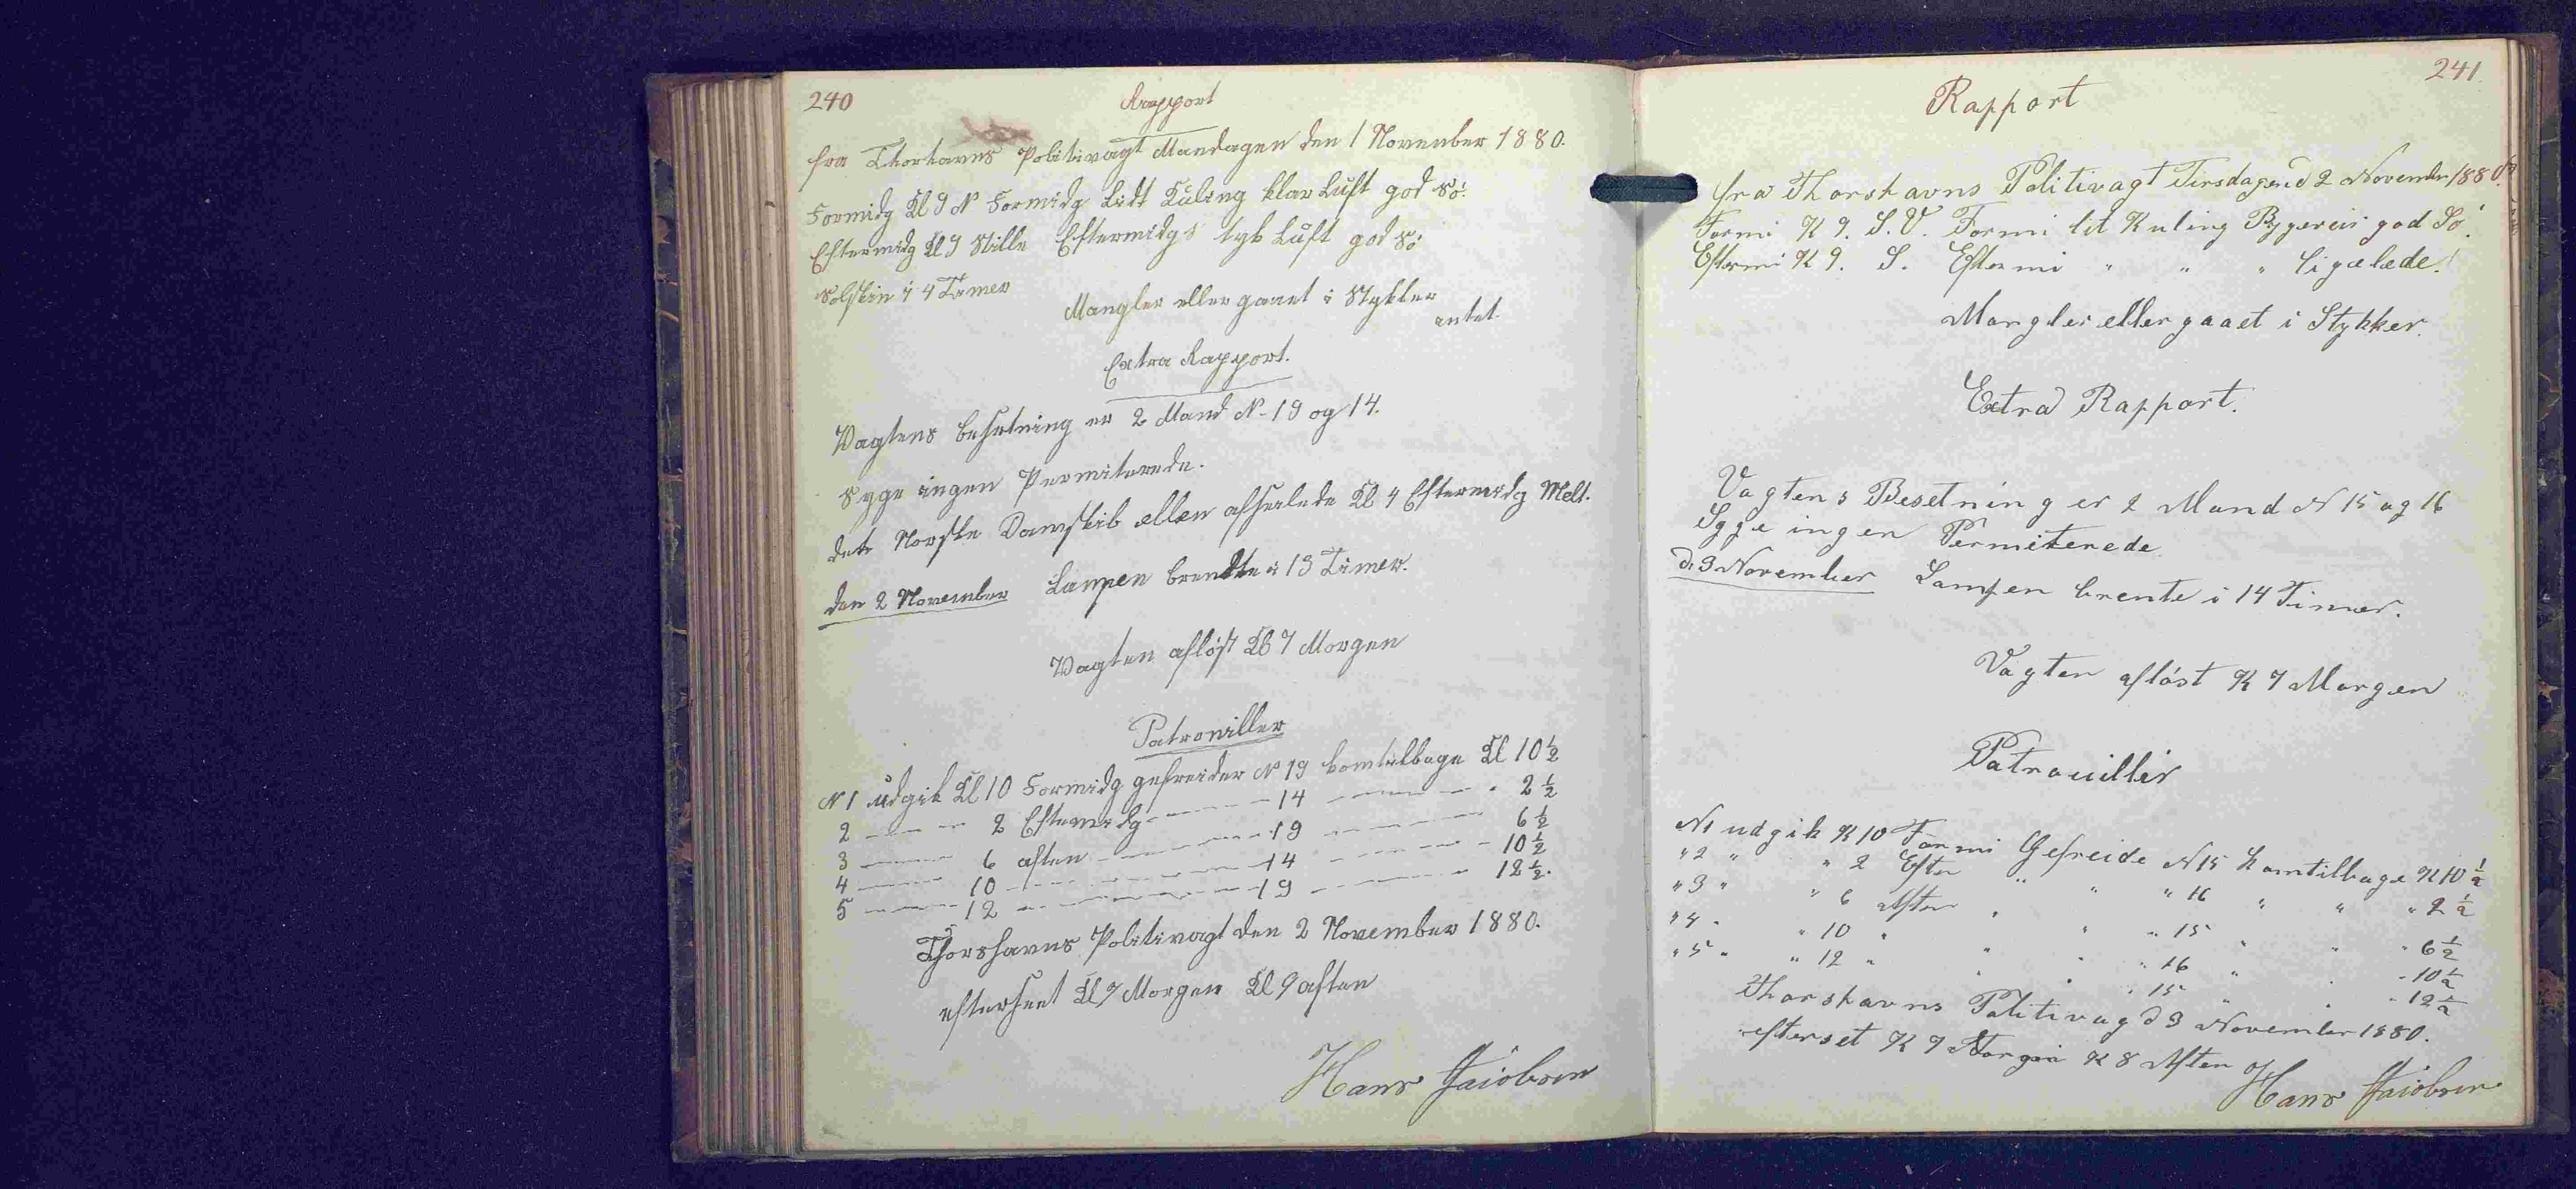 240
Rapport
fra Thorhavns Politivagt Mandagen den 1 November 1880.
Formidg Kl 9 N Formidg Lidt Kuling klar Luft god Sö.
Eftermidg Kl 9 Stille Eftermidgs tyk Luft god Sö
Solskin i 4 Timer
Mangler eller gaaet i Stykker
intet.
Extra Rapport.
Vagtens besetning er 2 Mand N. 19 og 14.
Syge ingen Permiterede.
det Norske Damskib ellen afseilede Kl 4 Eftermidg Melt.
den 2 November Lampen brendte i 13 Timer.
Vagten aflöst Kl 7 Morgen
Patrouiller
N 1 udgik Kl 10 Formidg gefreider N 19 komtilbage Kl 10 ½
2 — — 2 Eftermidg — — 14 — — " 2 ½
3 — — 6 aften — — 19 — — 6 ½
4 — — 10 — — 14 — — 10 ½
5 — — 12 — — 19 — — 12 ½.
Thorshavns Politivagt den 2 November 1880.
efterseet Kl 7 Morgen Kl 9 aften
Hans Jaiobsen
241
Rapport
fra Thorshavns Politivagt Tirsdagen d 2 November 1880
Formi Kl 9. S.V. Formi lit Kuling Bygeveir god Sö.
Eftermi Kl 9. S. Eftermi " " " ligelede.
Mangler eller gaaet i Stykker.
Extra Rapport.
Vagtens Besetning er 2 Mand N 15 og 16
Syge ingen Permiterede
d. 3 November Lampen brente i 14 Timer.
Vagten aflöst Kl 7 Morgen
Patrouiller
N1 udgik Kl 10 Formi Gefreide N 15 komtilbage Kl 10 ½
" 2 " " 2 Efter " " " 16 " " " 2 ½
" 3 " " 6 Aften " " " 15 " " " 6 ½
" 4 " " 10 " " " " 16 " " " 10 ½
" 5 " " 12 " " " " 15 " " " 12 ½
Thorshavns Politivag d 3 November 1880.
efterset Kl 7 Morgen Kl 8 Aften
Hans Jaiobsen